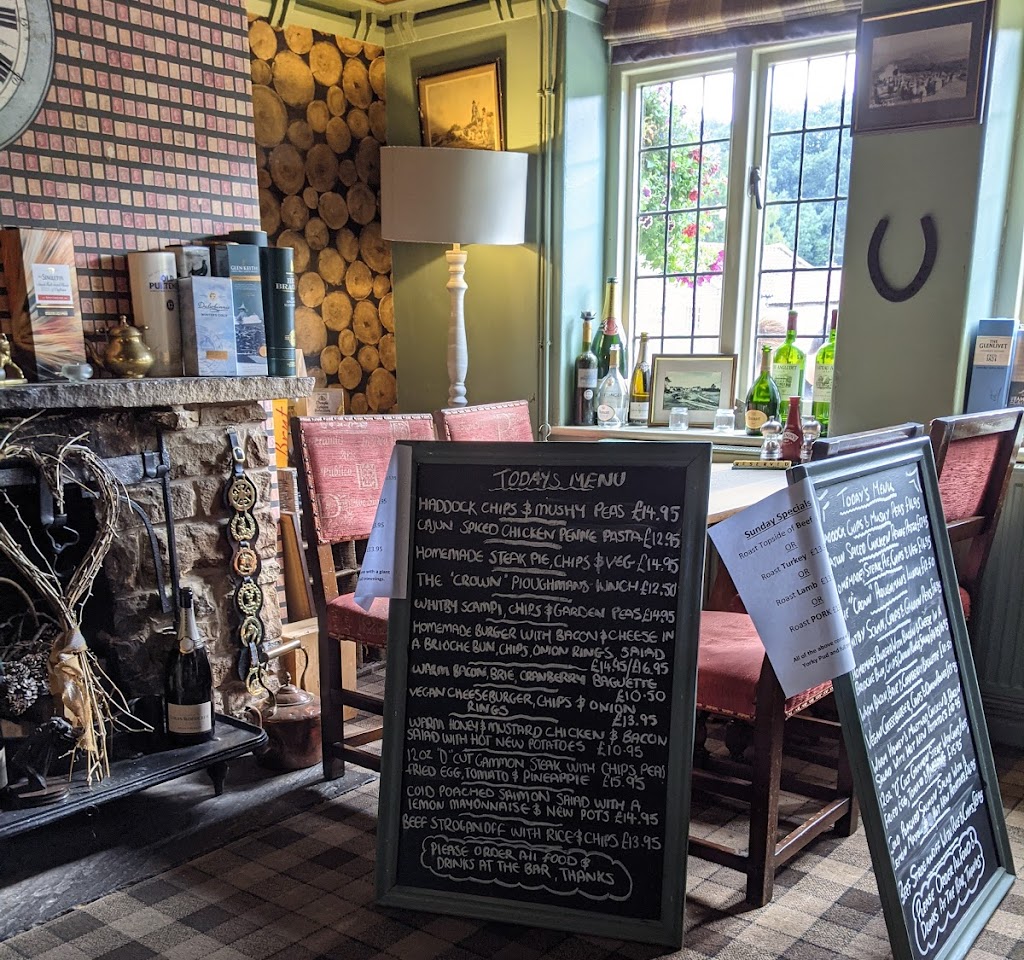 TODAYS MENU
HADDOCK CHIPS & MUSHY PEAS £14.95
CAJUN SPICED CHICKEN PENNE PASTA £12.95
HOMEMADE STEAK PIE, CHIPS & VEG £14.95
THE 'CROWN' PLOUGHMANS LUNCH £12.50
WHITBY SCAMPI, CHIPS & GARDEN PEAS £14.95
HOMEMADE BURGER WITH BACON & CHEESE IN
A BRIOCHE BUN, CHIPS, ONION RINGS, SALAD
£14.95/£16.95
WARM BACON, BRIE, CRANBERRY BAGUETTE
£10.50
VEGAN CHEESEBURGER, CHIPS & ONION
RINGS £13.95
WARM HONEY & MUSTARD CHICKEN & BACON
SALAD WITH HOT NEW POTATOES £10.95
12oz 'D' CUT GAMMON STEAK WITH CHIPS, PEAS
FRIED EGG, TOMATO & PINEAPPLE £15.95
COLD POACHED SALMON SALAD WITH A
LEMON MAYONNAISE & NEW POTS £14.95
BEEF STROGANOFF WITH RICE & CHIPS £13.95
PLEASE ORDER All FOOD &
DRINKS AT THE BAR, THANKS
Sunday Specials
Roast Topside of Beef
OR
Roast Turkey
OR
Roast Lamb
OR
Roast PORK
All of the above
Yorky Pud and
TODAY'S MENU
HADDOCK CHIPS & MUSHY PEAS £14.95
CAJUN SPICED CHICKEN PENNE PASTA
HOMEMADE STEAK PIE, CHIPS & VEG
"CROWN" PLOUGHMAN'S LUNCH
WHITBY SCAMPI CHIPS & GARDEN PEAS
HOMEMADE BURGER
PLEASE ORDER ALL FOOD &
DRINKS AT THE BAR, THANKS
SINGLETON
GLEN KEITH
Dalwhinnie
THE
GLENLIVET